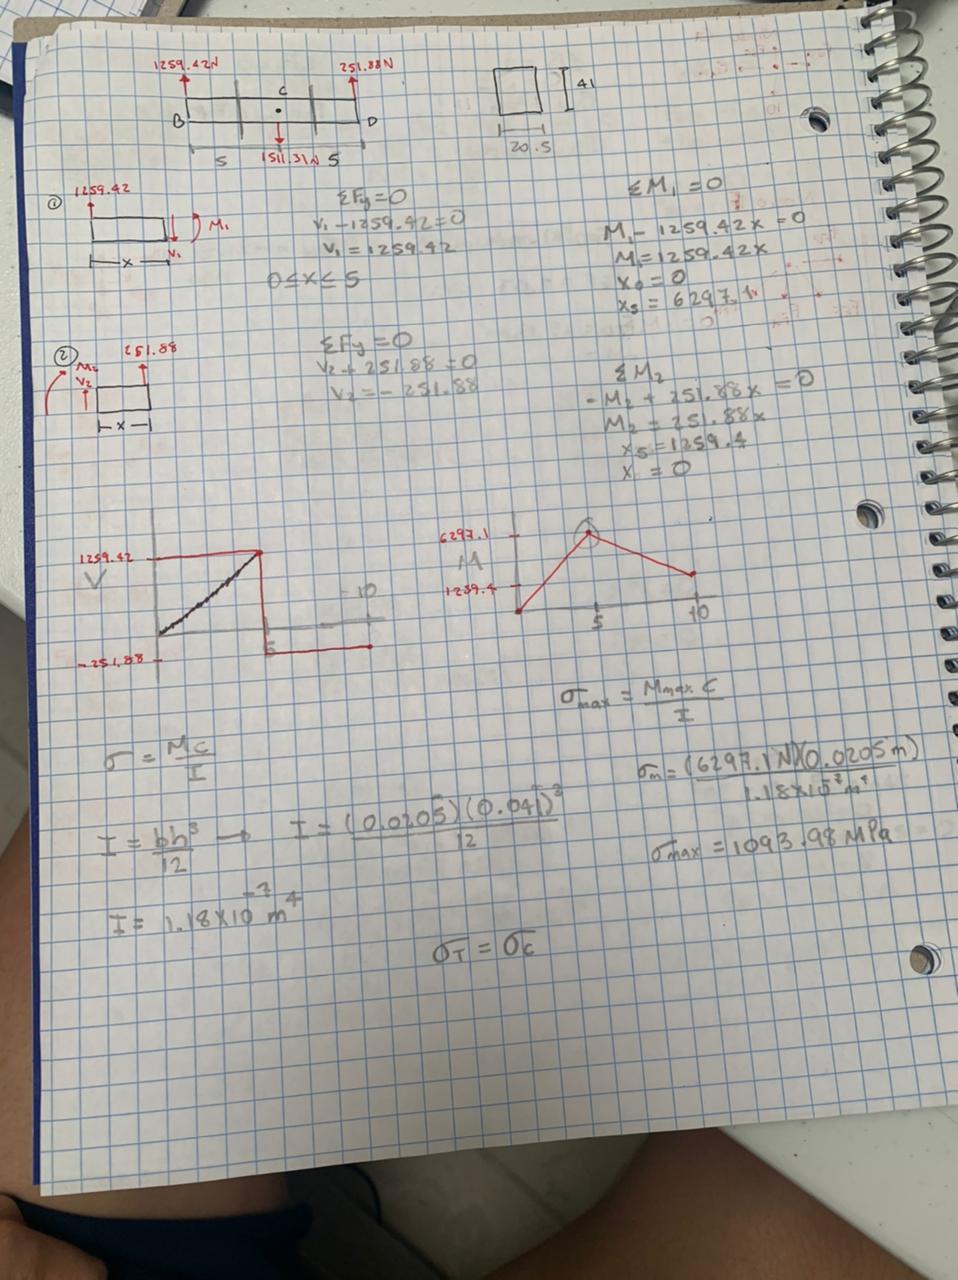 1259.42N
251.88N
C
B
D
5
1511.31N
5
41
20.5
①
1259.42
M₁
V₁
x
ΣFy=0
V₁-1259.42=0
V₁=1259.42
0≤x≤5
ΣM₁=0
M₁-1259.42x=0
M₁=1259.42x
x₀=0
x₅=6297.1
②
251.88
M₂
V₂
x
ΣFy=0
V₂+251.88=0
V₂=-251.88
ΣM₂
-M₂+251.88x=0
M₂=251.88x
x₅=1259.4
x =0
1259.42
V
-251.88
5
10
6297.1
M
1259.4
5
10
σmax = Mmax C / I
σ = MC / I
σm = (6297.1N)(0.0205m) / 1.18x10⁻⁷m⁴
I = bh³ / 12 → I = (0.0205)(0.041)³ / 12
σmax = 1093.98 MPa
I = 1.18x10⁻⁷ m⁴
σT = σC